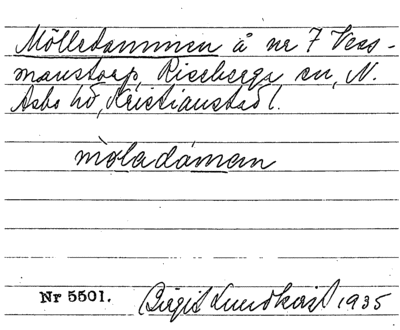 Mölledammen å nr 7 Vess-
manstorp, Riseberga sn, N.
Åsbo hd, Kristianstad l.
mòladámen
Nr 5501. Birgit Lundkvist 1935